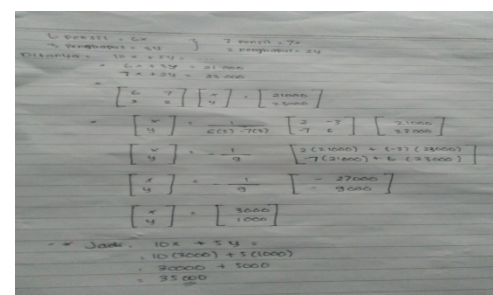 6 pensil = 6x } 7 pensil = 7x
3 penghapus = 3y 2 penghapus = 2y
Ditanya = 10x + 5y = ...
= 6x + 3y = 21000
7x + 2y = 23000
[6 7 / 3 2] [x / y] = [21000 / 23000]
[x / y] = 1 / 6(2) - 7(3) [2 -3 / -7 6] [21000 / 23000]
[x / y] = - 1 / 9 [2(21000) + (-3)(23000) / -7(21000) + 6(23000)]
[x / y] = - 1 / 9 [- 27000 / - 9000]
[x / y] = [3000 / 1000]
Jadi. 10x + 5y =
= 10(3000) + 5(1000)
= 30000 + 5000
= 35000